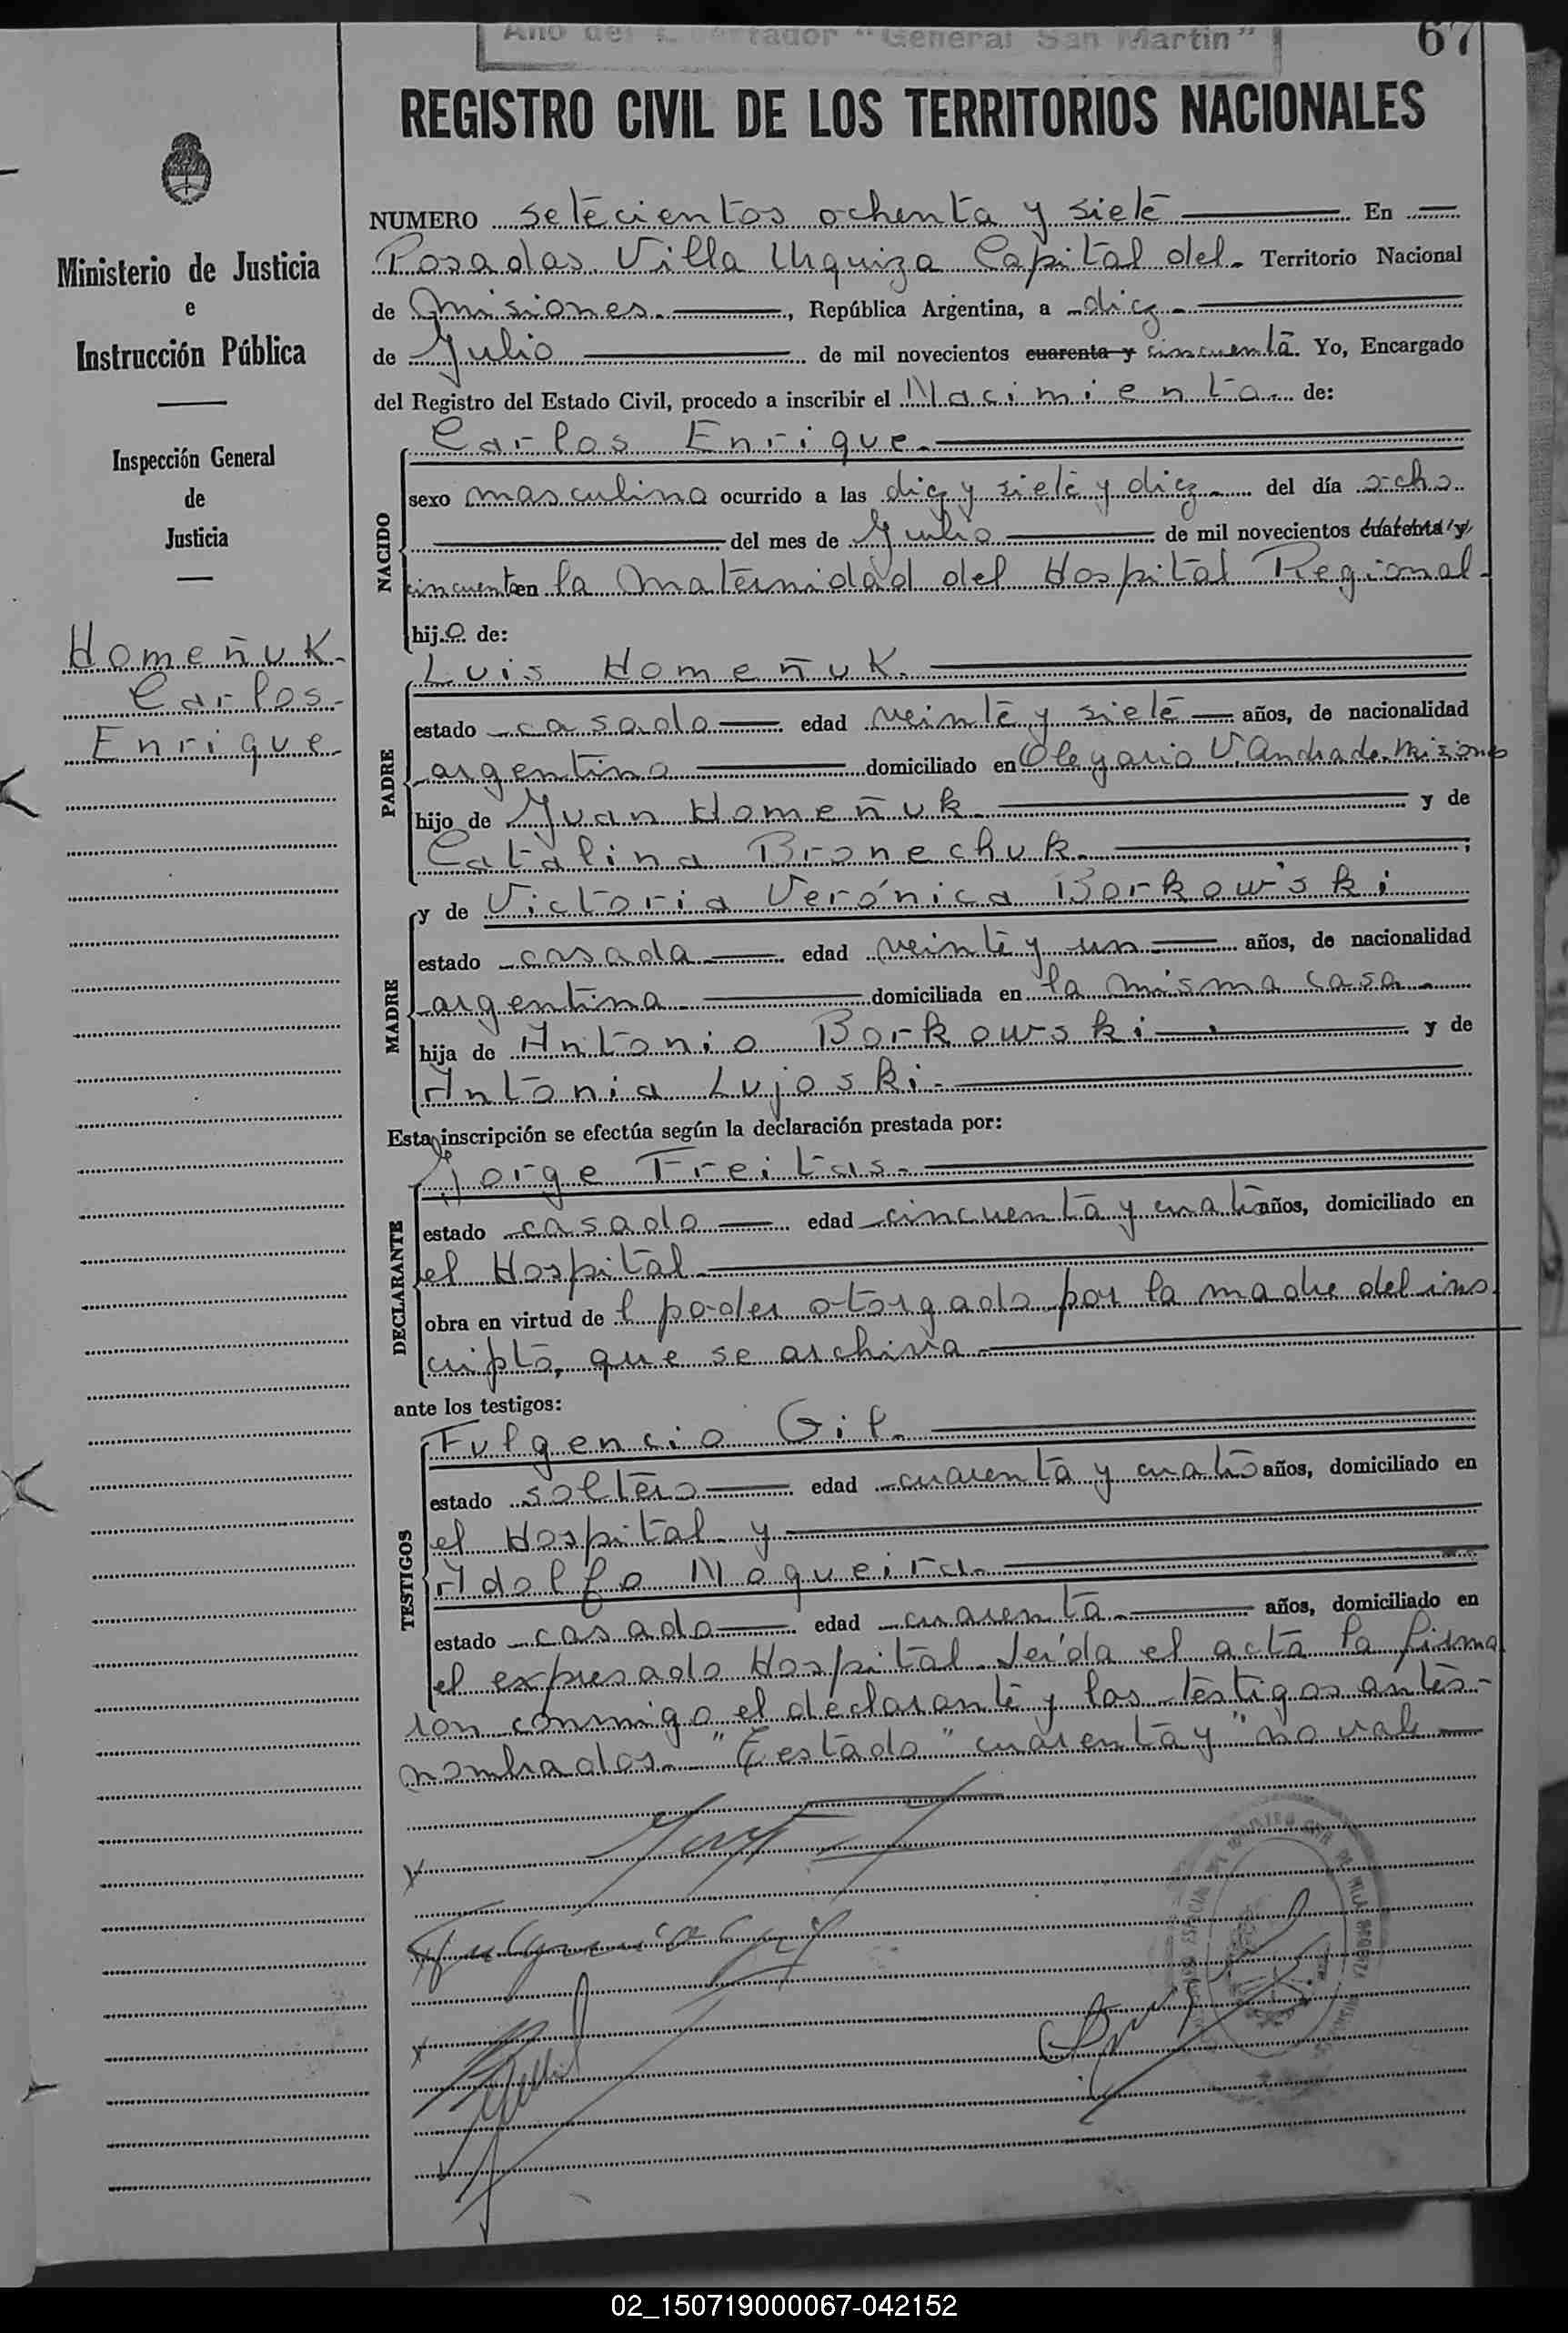 Año del Libertador "General San Martin"
67
REGISTRO CIVIL DE LOS TERRITORIOS NACIONALES
Ministerio de Justicia
e
Instrucción Pública
Inspección General
de
Justicia
Homeñuk
Carlos
Enrique
NUMERO setecientos ochenta y siete En
Posadas, Villa Urquiza Capital del Territorio Nacional
de Misiones, República Argentina, a diez
de Julio de mil novecientos cuarenta y cincuenta. Yo, Encargado
del Registro del Estado Civil, procedo a inscribir el Nacimiento de:
NACIDO
Carlos Enrique
sexo masculino ocurrido a las diez y siete y diez del día ocho
del mes de Julio de mil novecientos cuarenta y
cincuenta en la Maternidad del Hospital Regional
hijo de:
PADRE
Luis Homeñuk
estado casado edad veinte y siete años, de nacionalidad
argentino domiciliado en Olegario V. Andrade. Misiones
hijo de Juan Homeñuk y de
Catalina Bronechuk ;
MADRE
y de Victoria Verónica Borkowski
estado casada edad veinte y un años, de nacionalidad
argentina domiciliada en la misma casa
hija de Antonio Borkowski y de
Antonia Lujoski
Esta inscripción se efectúa según la declaración prestada por:
DECLARANTE
Jorge Freitas
estado casado edad cincuenta y cuatro años, domiciliado en
el Hospital
obra en virtud del poder otorgado por la madre del ins
cripto, que se archiva
ante los testigos:
TESTIGOS
Fulgencio Gil
estado soltero edad cuarenta y cuatro años, domiciliado en
el Hospital y
Adolfo Noqueira
estado casado edad cuarenta años, domiciliado en
el expresado Hospital. Leída el acta la firma
ron conmigo el declarante y los testigos antes
nombrados. "Estado" "cuarenta y" no vale
Fulgencio Gil
02_150719000067-042152